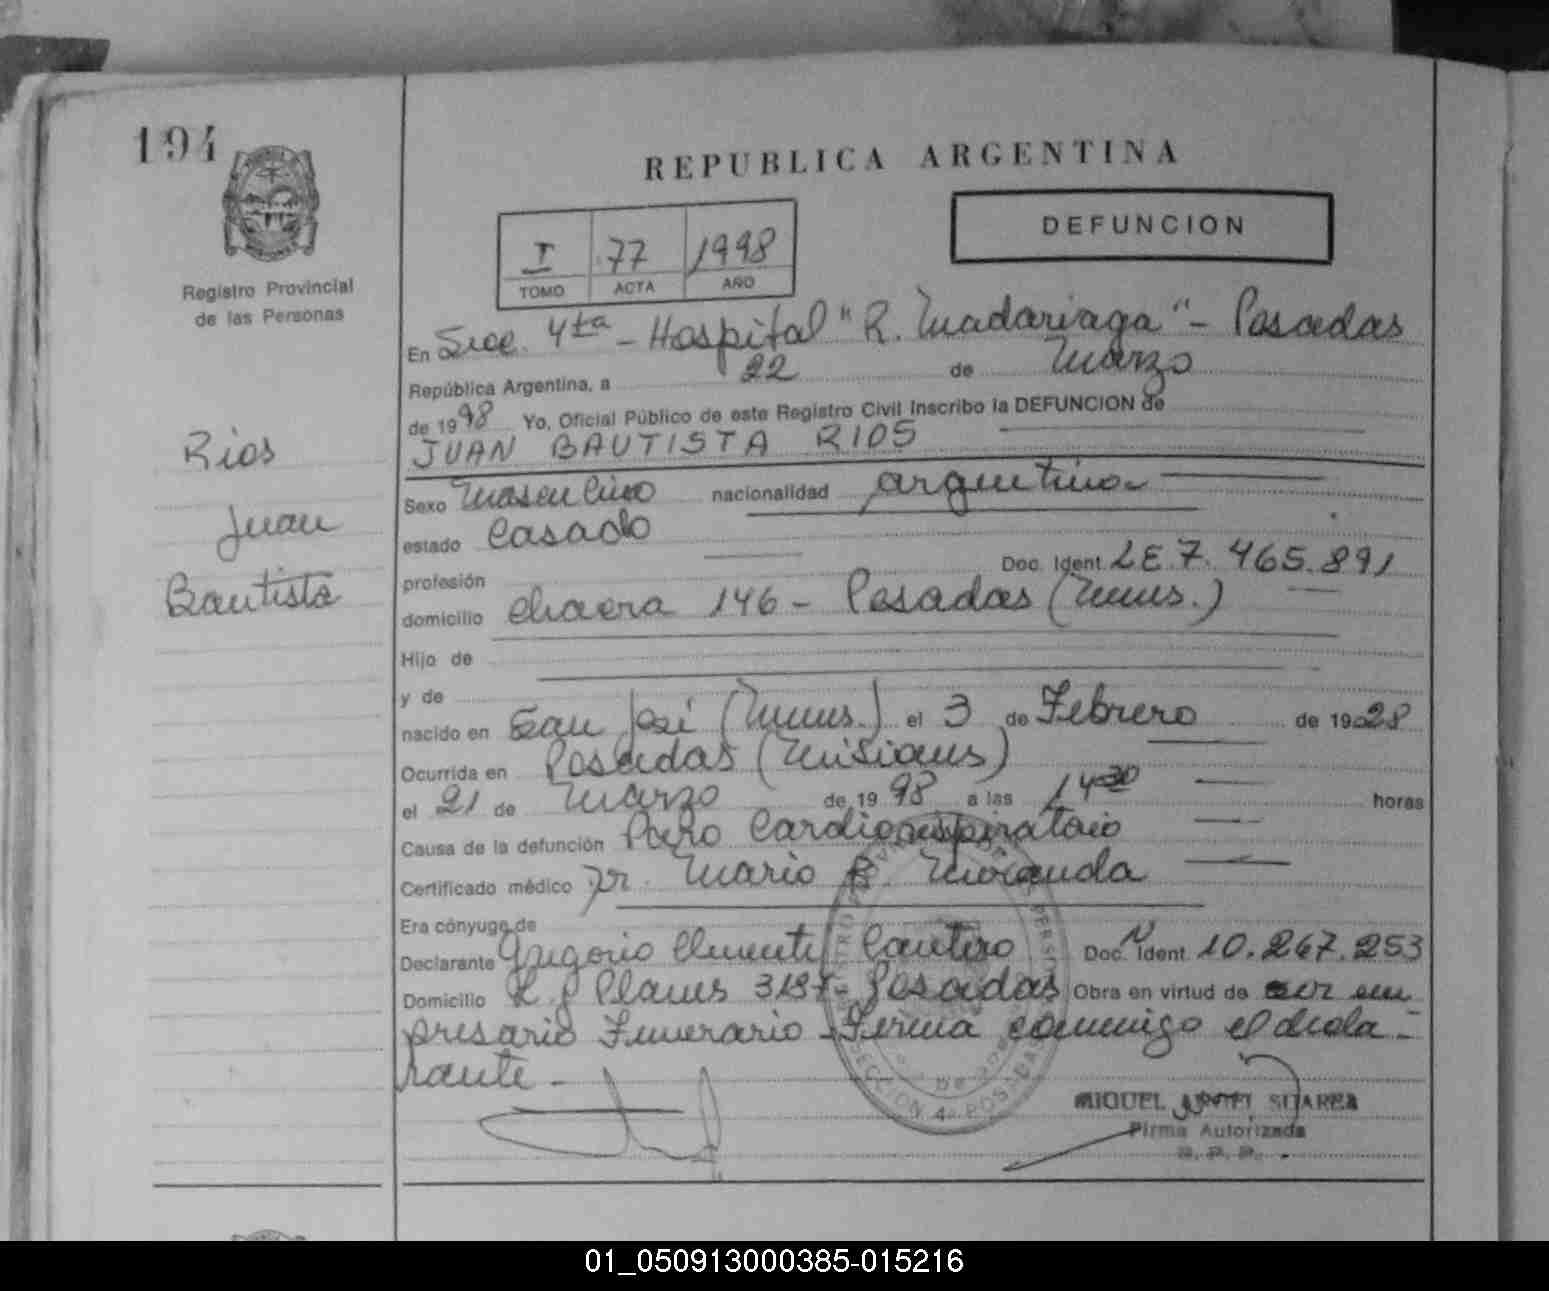 194
REPUBLICA ARGENTINA
DEFUNCION
I 77 1998
TOMO ACTA AÑO
Registro Provincial
de las Personas
En Secc. 4ta - Hospital "R. Madariaga" - Posadas
República Argentina, a 22 de Marzo
de 1998 Yo, Oficial Público de este Registro Civil Inscribo la DEFUNCION de
JUAN BAUTISTA RIOS
Rios
Juan
Bautista
Sexo Masculino nacionalidad argentina
estado Casado
profesión Doc. Ident. L.E. 7.465.891
domicilio chacra 146 - Posadas (Mnes.)
Hijo de
y de
nacido en San José (Mnes.) el 3 de Febrero de 1928
Ocurrida en Posadas (Misiones)
el 21 de Marzo de 1998 a las 14 30 horas
Causa de la defunción Paro Cardiorespiratorio
Certificado médico Dr. Mario Miranda
Era cónyuge de
Declarante Gregorio Clemente Doc. Ident. 10.267.253
Domicilio Posadas Obra en virtud de ser em
presario Funerario - Firma conmigo el decla-
rante -
SECCION 4ª POSADAS
MIGUEL ANGEL SUAREZ
Firma Autorizada
R. P. P.
01_050913000385-015216